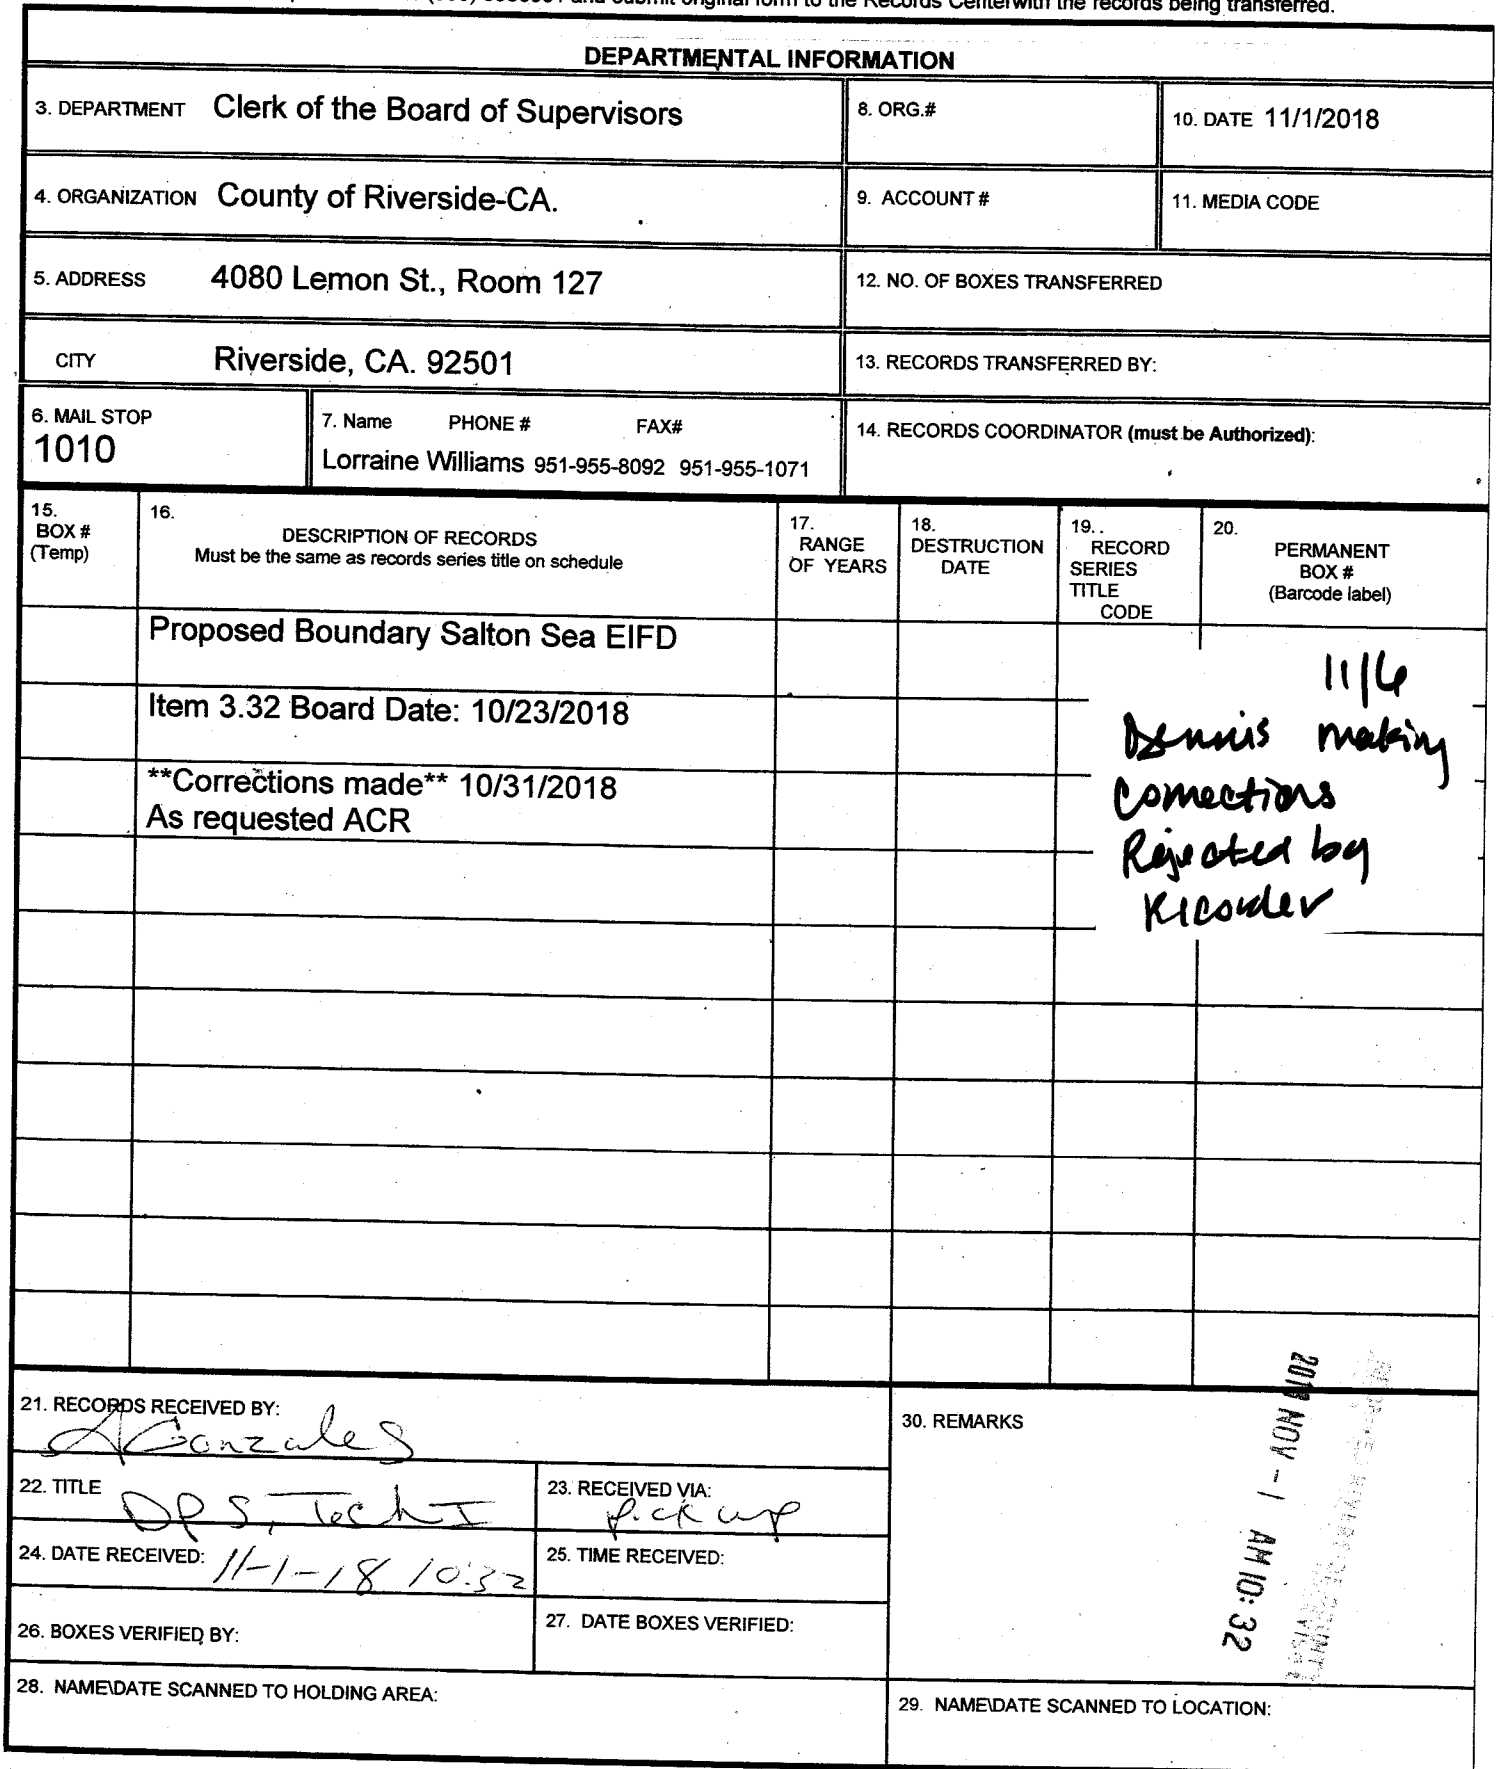 and submit original form to the Records Centerwith the records being transferred.
DEPARTMENTAL INFORMATION
3. DEPARTMENT Clerk of the Board of Supervisors
8. ORG.#
10. DATE 11/1/2018
4. ORGANIZATION County of Riverside-CA.
9. ACCOUNT #
11. MEDIA CODE
5. ADDRESS 4080 Lemon St., Room 127
12. NO. OF BOXES TRANSFERRED
CITY Riverside, CA. 92501
13. RECORDS TRANSFERRED BY:
6. MAIL STOP
1010
7. Name PHONE # FAX#
Lorraine Williams 951-955-8092 951-955-1071
14. RECORDS COORDINATOR (must be Authorized):
15.
BOX #
(Temp)
16.
DESCRIPTION OF RECORDS
Must be the same as records series title on schedule
17.
RANGE
OF YEARS
18.
DESTRUCTION
DATE
19..
RECORD
SERIES
TITLE
CODE
20.
PERMANENT
BOX #
(Barcode label)
Proposed Boundary Salton Sea EIFD
Item 3.32 Board Date: 10/23/2018
**Corrections made** 10/31/2018
As requested ACR
11/6
Dennis making
corrections
Rejected by
Recorder
21. RECORDS RECEIVED BY:
AGonzales
22. TITLE
OPS, Tech I
23. RECEIVED VIA:
pick up
24. DATE RECEIVED: 11-1-18 10:32
25. TIME RECEIVED:
26. BOXES VERIFIED BY:
27. DATE BOXES VERIFIED:
28. NAME\DATE SCANNED TO HOLDING AREA:
30. REMARKS
2018 NOV -1 AM 10: 32
29. NAME\DATE SCANNED TO LOCATION: